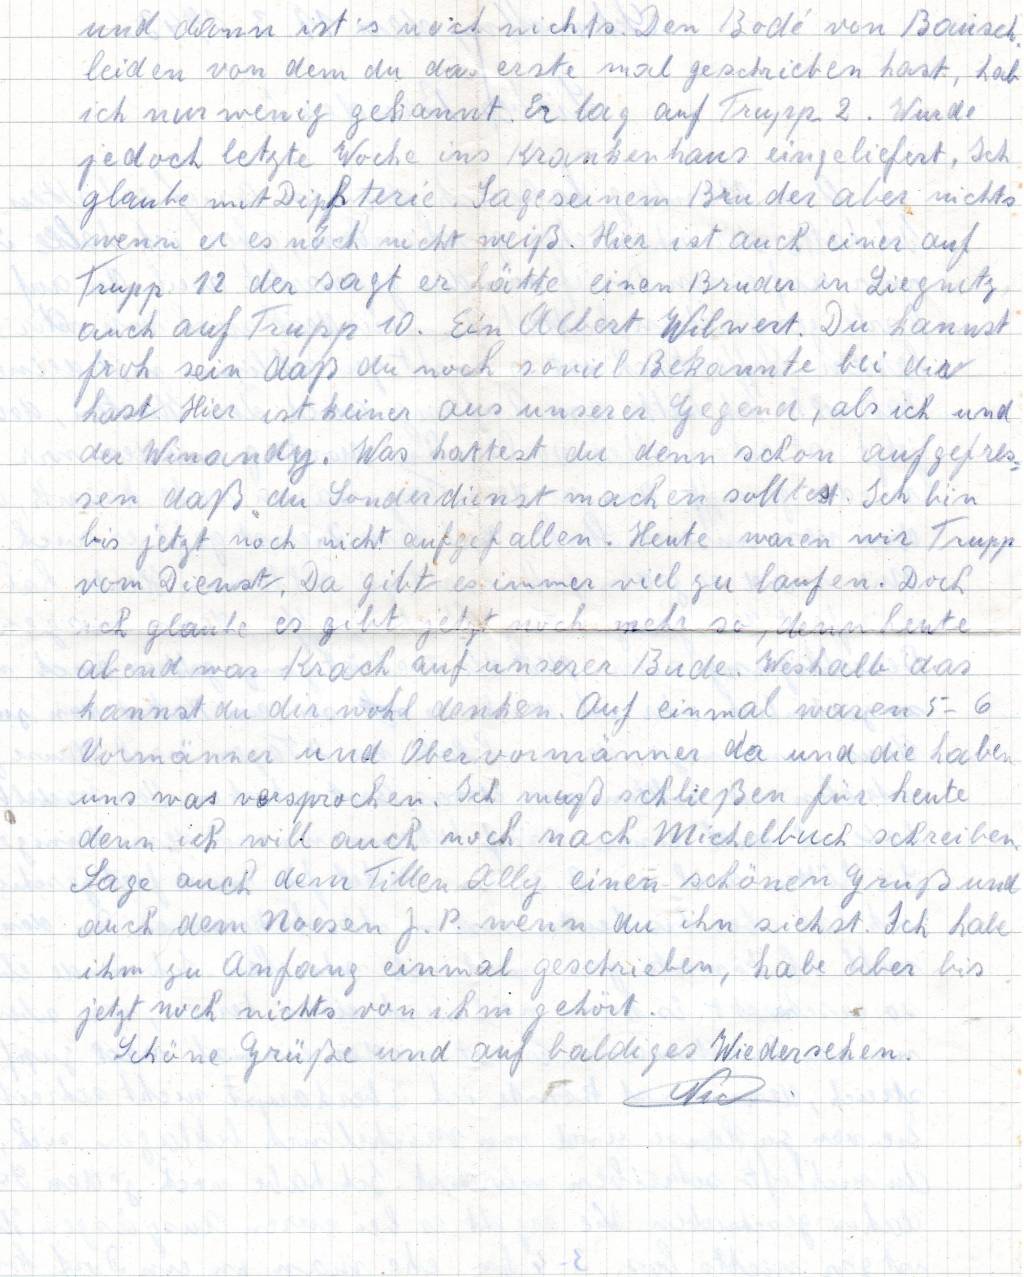 und dann ist's noch nichts. Den Bodé von Bausch-
leiden von dem du das erste mal geschrieben hast, hab
ich nur wenig gekannt. Er lag auf Trupp 2. Wurde
jedoch letzte Woche ins Krankenhaus eingeliefert, Ich
glaube mit Diphterie. Sage seinem Bruder aber nichts
wenn er es noch nicht weiß. Hier ist auch einer auf
Trupp 12 der sagt er hätte einen Bruder in Liegnitz,
auch auf Trupp 10. Ein Albert Wilwert. Du kannst
froh sein daß du noch soviel Bekannte bei dir
hast Hier ist keiner aus unserer Gegend, als ich und
der Winandy. Was hattest du denn schon aufgefres=
sen daß du Sonderdienst machen solltest. Ich bin
bis jetzt noch nicht aufgefallen. Heute waren wir Trupp
vom Dienst. Da gibt es immer viel zu laufen. Doch
ich glaube es gibt jetzt noch mehr so, denn heute
abend war Krach auf unserer Bude. Weshalb das
kannst du dir wohl denken. Auf einmal waren 5-6
Vormänner und Obervormänner da und die haben
uns was versprochen. Ich muß schließen für heute
denn ich will auch noch nach Michelbuch schreiben.
Sage auch dem Tillen Ally einen schönen Gruß und
auch dem Noesen J. P. wenn du ihn siehst. Ich habe
ihm zu Anfang einmal geschrieben, habe aber bis
jetzt noch nichts von ihm gehört.
Schöne Grüße und auf baldiges Wiedersehen.
Nic